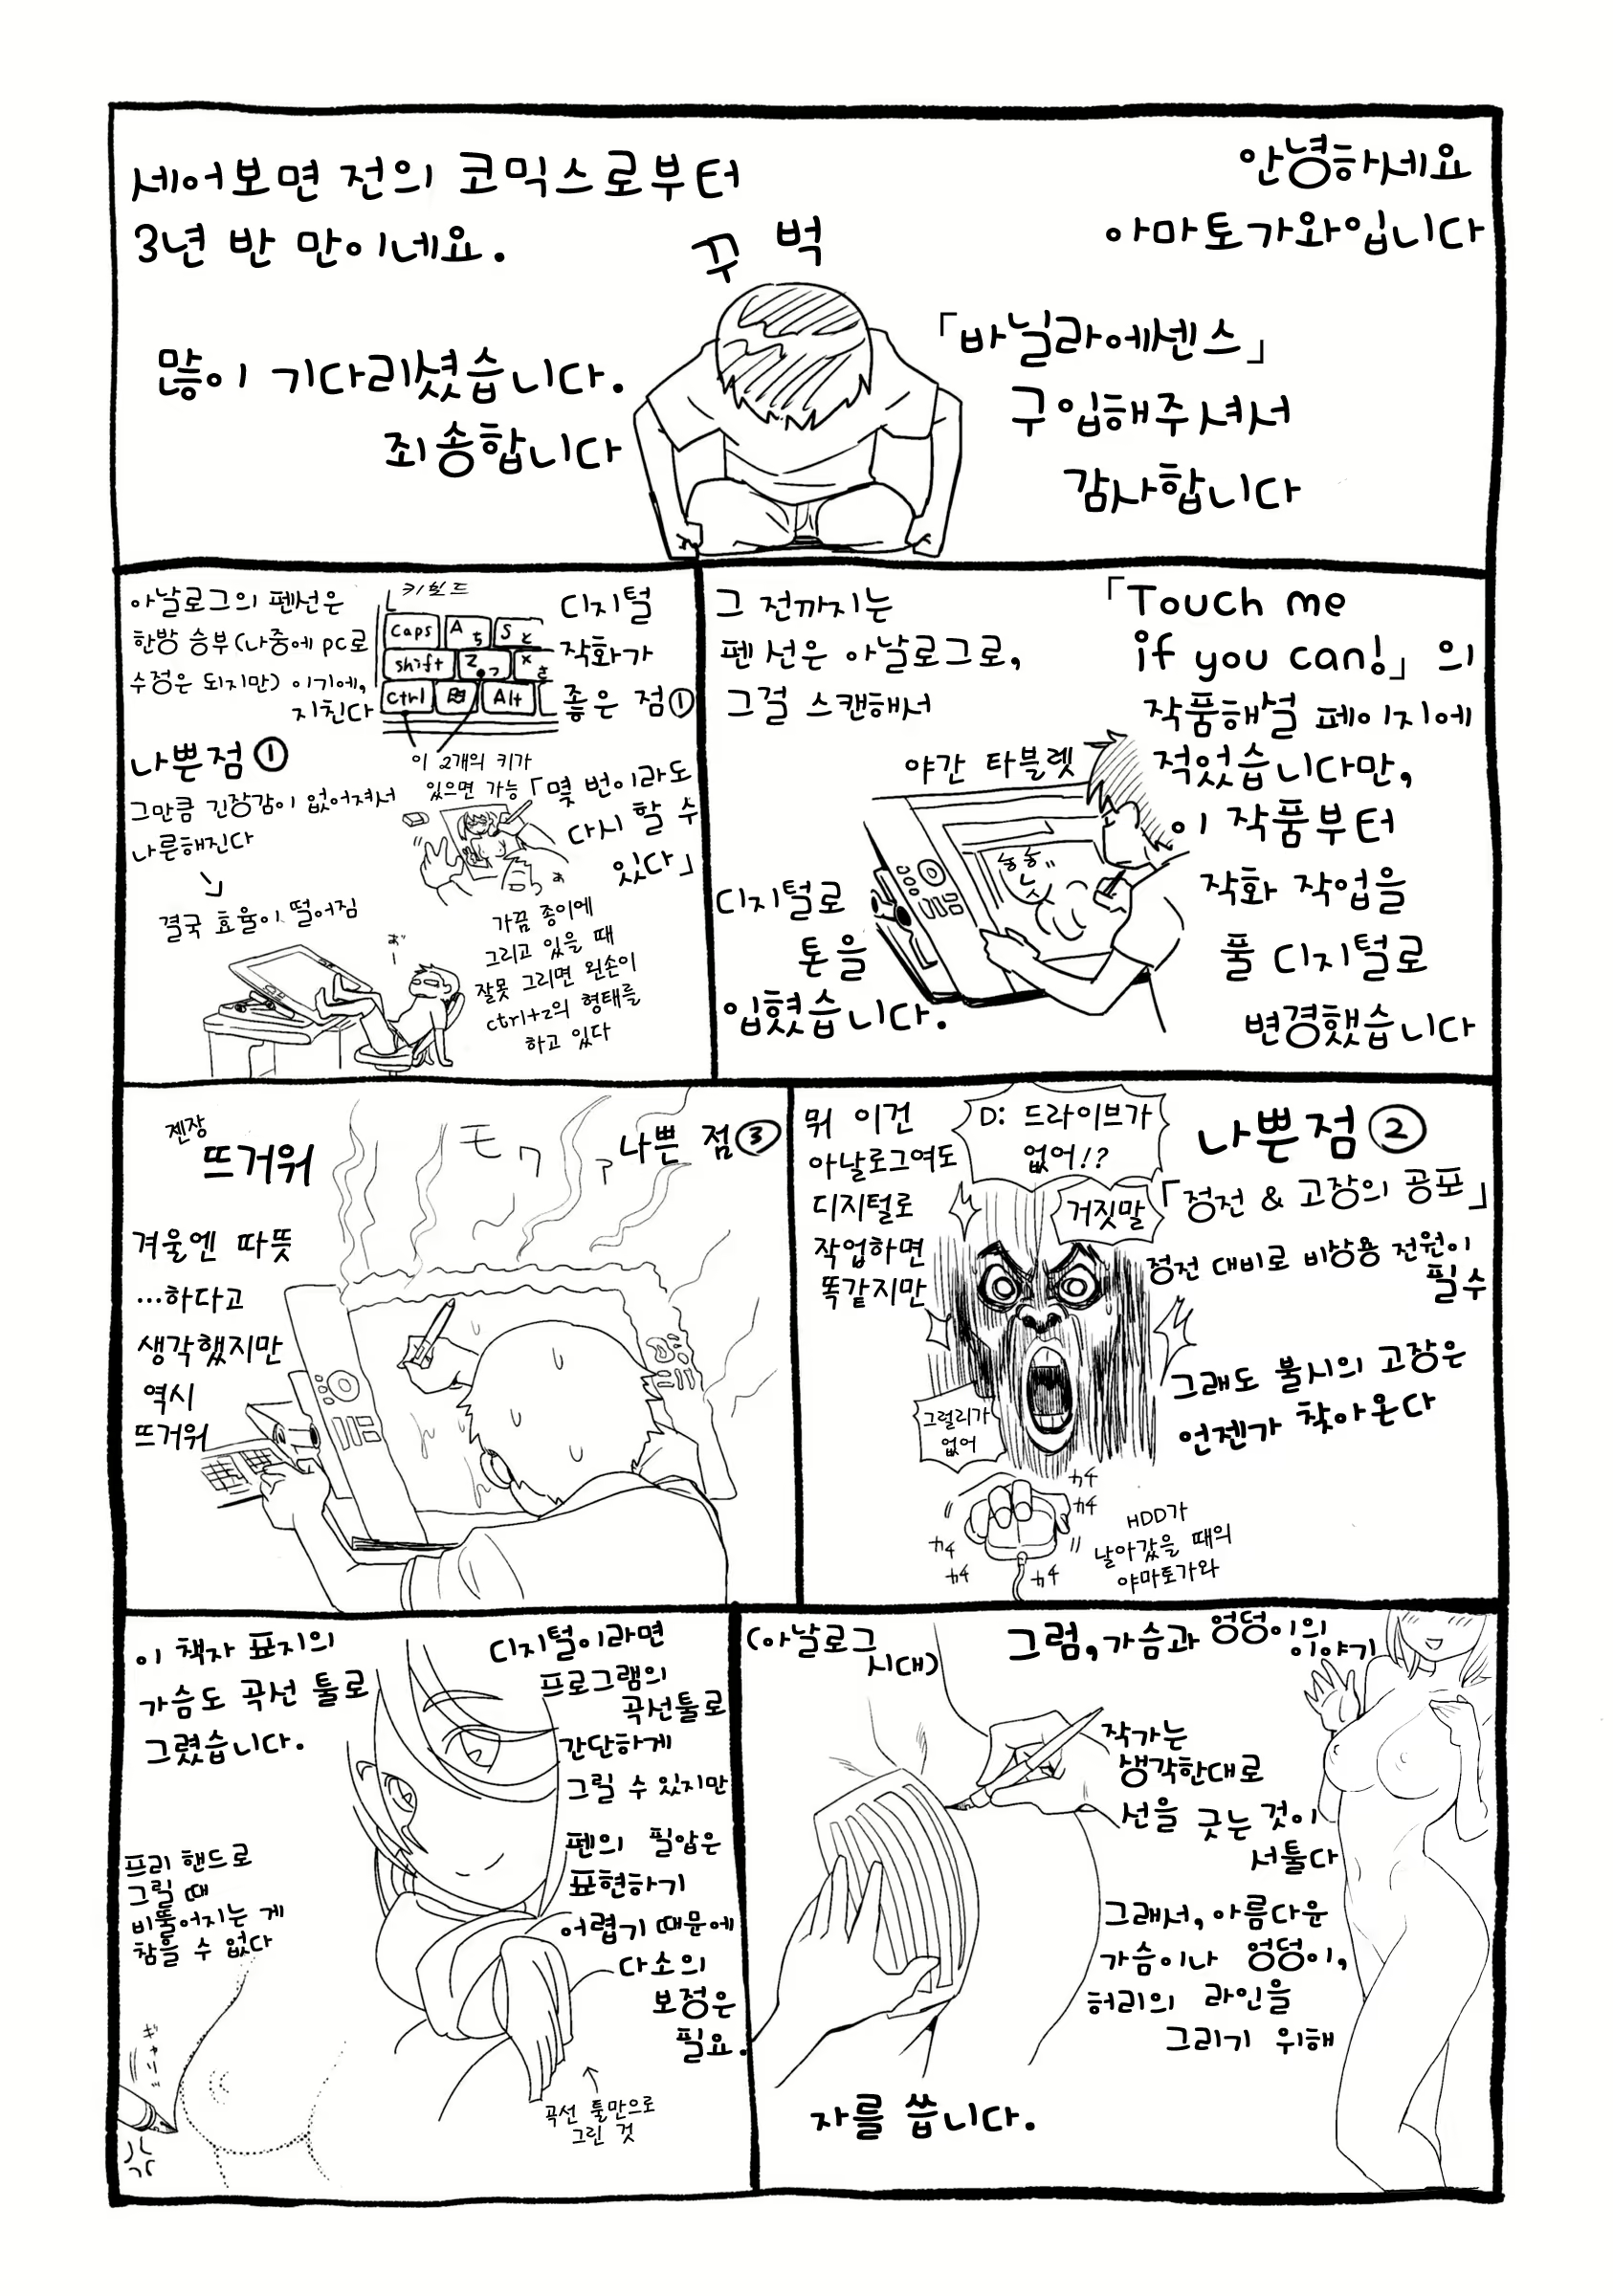 안녕하세요
아마토가와입니다
「바닐라에센스」
구입해주셔서
감사합니다
꾸벅
세어보면 전의 코믹스로부터
3년 반 만이네요.
많이 기다리셨습니다.
죄송합니다
「Touch me
if you can!」의
작품해설 페이지에
적었습니다만,
이 작품부터
작화 작업을
풀 디지털로
변경했습니다
그 전까지는
펜 선은 아날로그로,
그걸 스캔해서
야간 타블렛
디지털로
톤을
입혔습니다.
디지털
작화가
좋은 점①
「몇 번이라도
다시 할 수
있다」
키보드
Caps
A
ち
S
と
shift
Z
っ
X
さ
ctrl
Alt
이 2개의 키가
있으면 가능
가끔 종이에
그리고 있을 때
잘못 그리면 왼손이
ctrl+z의 형태를
하고 있다
아날로그의 펜선은
한방 승부(나중에 pc로
수정은 되지만) 이기에,
지친다
나쁜점①
그만큼 긴장감이 없어져서
나른해진다
결국 효율이 떨어짐
あ゛ー
나쁜점②
「정전 & 고장의 공포」
정전 대비로 비상용 전원이
필수
그래도 불시의 고장은
언젠가 찾아온다
D: 드라이브가
없어!?
거짓말
그럴리가
없어
뭐 이건
아날로그여도
디지털로
작업하면
똑같지만
カチ
カチ
カチ
カチ
カチ
HDD가
날아갔을 때의
야마토가와
나쁜 점③
モワァ
젠장
뜨거워
겨울엔 따뜻
…하다고
생각했지만
역시
뜨거워
그럼, 가슴과 엉덩이의
이야기
(아날로그
시대)
작가는
생각한대로
선을 긋는 것이
서툴다
그래서, 아름다운
가슴이나 엉덩이,
허리의 라인을
그리기 위해
자를 씁니다.
디지털이라면
프로그램의
곡선툴로
간단하게
그릴 수 있지만
펜의 필압은
표현하기
어렵기 때문에
다소의
보정은
필요.
곡선 툴만으로
그린 것
이 책자 표지의
가슴도 곡선 툴로
그렸습니다.
프리 핸드로
그릴 때
비뚤어지는 게
참을 수 없다
ギャリッ